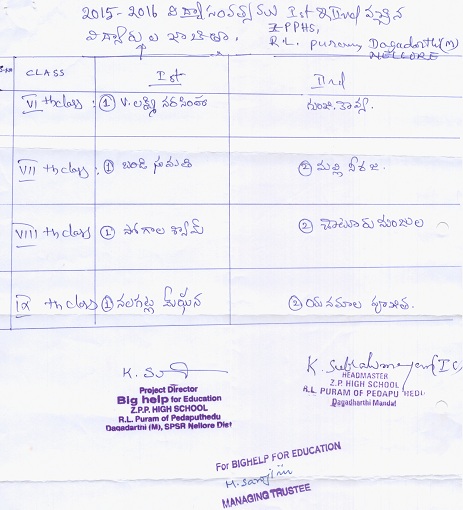 2015-2016 విద్యా సంవత్సరము Ist & IInd వచ్చిన
విద్యార్థుల జాబితా.
ZPPHS,
R.L. puram, Dagadarthi(M)
NELLORE
CLASS Ist IInd
VI th class : ① V. లక్ష్మీ నరసింహ గుంజి. కావ్య.
VII th class : ① బండి సుమతి ② మల్లి నీరజ.
VIII th class ① పోగాల శ్యామ్ ② చాటూరు మంజుల
IX th class ① నలగట్ల మేఘన ② యనమాల పూజిత.
Project Director
Big help for Education
Z.P.P. HIGH SCHOOL
R.L. Puram of Pedaputhedu
Dagadarthi (M), SPSR Nellore Dist
K. Subrahmanyam (I/C)
HEADMASTER
Z.P. HIGH SCHOOL
R.L. PURAM OF PEDAPUTHEDU
Dagadharthi Mandal
For BIGHELP FOR EDUCATION
MANAGING TRUSTEE